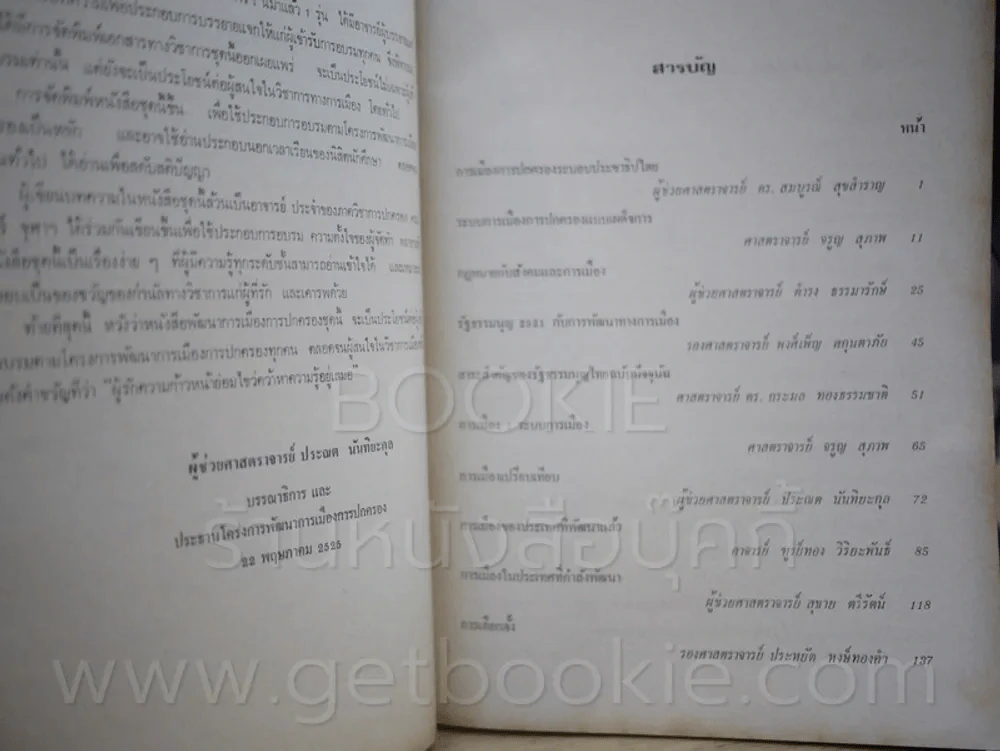 นมาแล้ว 1 รุ่น ได้มีอาจารย์
ประกอบการบรรยายแจกให้แก่ผู้เข้ารับการอบรมทุกคน
ได้มีการจัดพิมพ์เอกสารทางวิชาการชุดนี้ออกเผยแพร่ จะเป็นประโยชน์
เท่านั้น แต่ยังจะเป็นประโยชน์ต่อผู้สนใจในวิชาการทางการเมือง โดยทั่วไป
การจัดพิมพ์หนังสือชุดนี้ขึ้น เพื่อใช้ประกอบการอบรมตามโครงการพัฒนาการเมือง
เป็นหลัก และอาจใช้อ่านประกอบนอกเวลาเรียนของนิสิตนักศึกษา ตลอด
ทั่วไป ได้อ่านเพื่อลับสติปัญญา
ผู้เขียนบทความในหนังสือชุดนี้ล้วนเป็นอาจารย์ ประจำของภาควิชาการปกครอง คณะ
จุฬาฯ ได้ร่วมกันเขียนขึ้นเพื่อใช้ประกอบการอบรม ความตั้งใจของผู้จัดทำ
หนังสือชุดนี้เป็นเรื่องง่าย ๆ ที่ผู้มีความรู้ทุกระดับชั้นสามารถอ่านเข้าใจได้ และ
มอบเป็นของขวัญของกำนัลทางวิชาการแก่ผู้ที่รัก และเคารพด้วย
ท้ายที่สุดนี้ หวังว่าหนังสือพัฒนาการเมืองการปกครองชุดนี้ จะเป็นประโยชน์
อบรมตามโครงการพัฒนาการเมืองการปกครองทุกคน ตลอดจนผู้สนใจในวิชาการเมือง
ดังคำขวัญที่ว่า "ผู้รักความก้าวหน้าย่อมไขว่คว้าหาความรู้อยู่เสมอ"
ผู้ช่วยศาสตราจารย์ ประณต นันทิยะกุล
บรรณาธิการ และ
ประธานโครงการพัฒนาการเมืองการปกครอง
22 พฤษภาคม 2525
สารบัญ
หน้า
การเมืองการปกครองระบอบประชาธิปไตย
ผู้ช่วยศาสตราจารย์ ดร. สมบูรณ์ สุขสำราญ 1
ระบบการเมืองการปกครองแบบเผด็จการ
ศาสตราจารย์ จรูญ สุภาพ 11
กฎหมายกับสังคมและการเมือง
ผู้ช่วยศาสตราจารย์ ดำรง ธรรมารักษ์ 25
รัฐธรรมนูญ 2521 กับการพัฒนาทางการเมือง
รองศาสตราจารย์ พงศ์เพ็ญ ศกุนตาภัย 45
สาระสำคัญของรัฐธรรมนูญไทยฉบับปัจจุบัน
ศาสตราจารย์ ดร. กระมล ทองธรรมชาติ 51
การเมือง : ระบบการเมือง
ศาสตราจารย์ จรูญ สุภาพ 65
การเมืองเปรียบเทียบ
ผู้ช่วยศาสตราจารย์ ประณต นันทิยะกุล 72
การเมืองของประเทศที่พัฒนาแล้ว
อาจารย์ ฑูรย์ทอง วิริยะพันธ์ 85
การเมืองในประเทศที่กำลังพัฒนา
ผู้ช่วยศาสตราจารย์ สุขาย ตรีรัตน์ 118
การเลือกตั้ง
รองศาสตราจารย์ ประหยัด หงษ์ทองคำ 137
BOOKIE
ร้านหนังสือบุ๊คกี้
www.getbookie.com